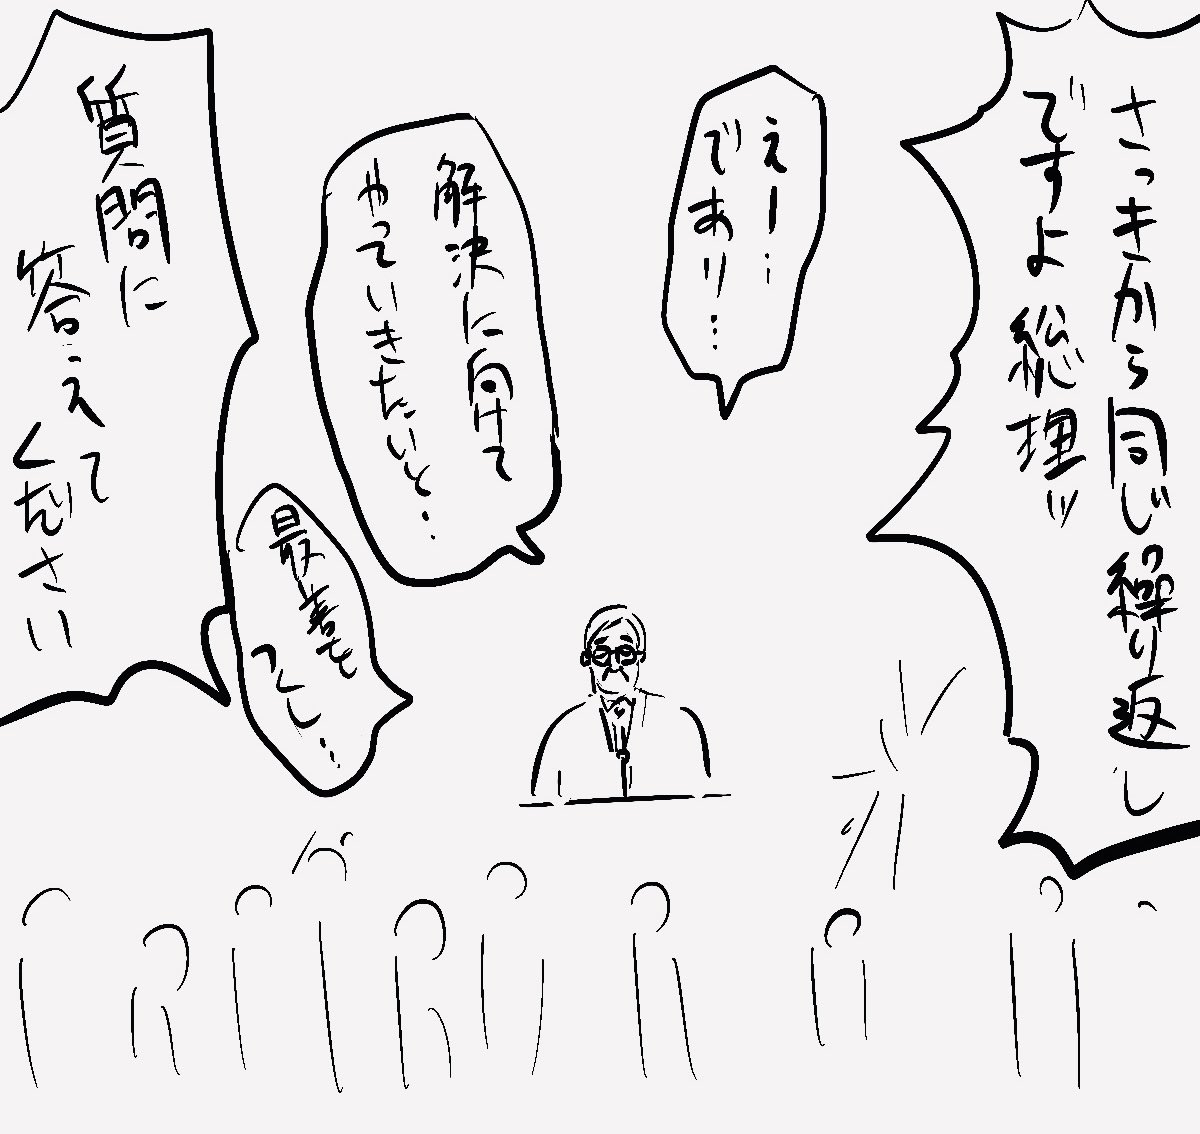 さっきから同じ繰り返し
ですよ総理!!
えー…
であり…
解決に向けて
やっていきたいと…
最善を
つくし…
質問に
答えて
ください